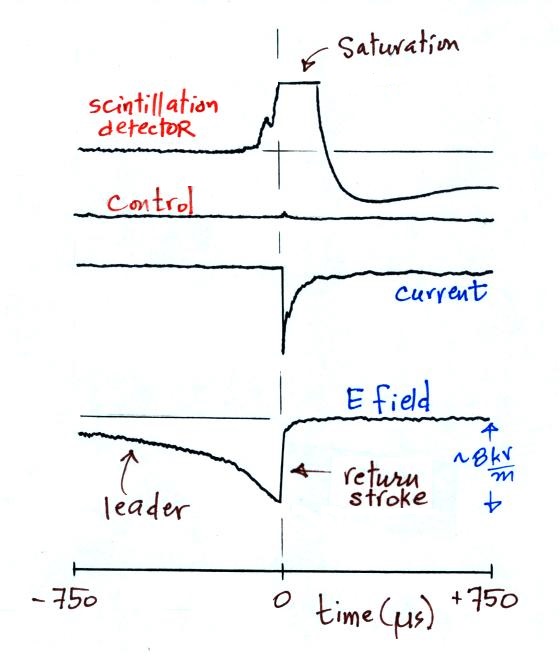 Saturation
scintillation
detector
Control
current
E field
~8 kV/m
leader
return
stroke
-750
0
time (μs)
+750